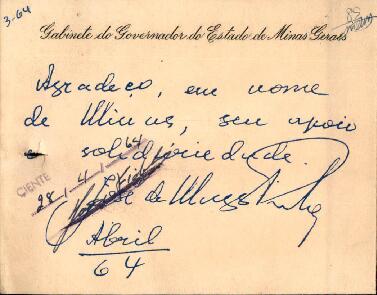 3-64
Gabinete do Governador do Estado de Minas Gerais
Agradeço, em nome
de Minas, seu apoio
e solidariedade
CIENTE
28/4/64
José de Magalhães Pinto
Abril
64